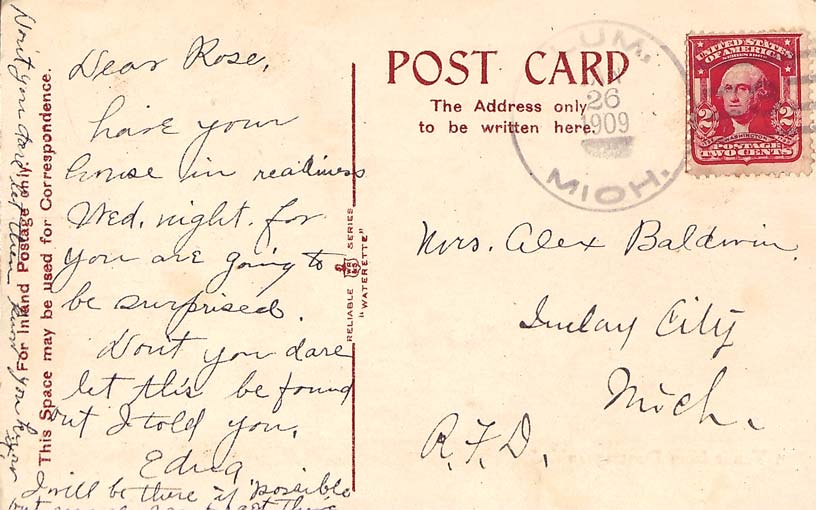 Dear Rose,
have your
house in readiness
Wed. night. for
you are going to
be surprised.
Don't you dare
let this be found
out I told you.
Edna
I will be there if possible
Don't you dare let them know you know
For Inland Postage only
This Space may be used for Correspondence.
RELIABLE SERIES
"WATERETTE"
POST CARD
The Address only
to be written here.
LUM.
26
1909
MICH.
UNITED STATES
OF AMERICA
2 2
WASHINGTON
POSTAGE
TWO CENTS
Mrs. Alex Baldwin.
Imlay City
Mich.
R.F.D.